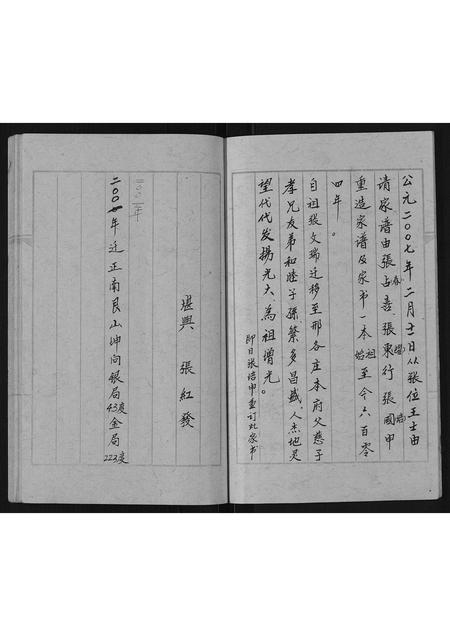 公元二〇〇七年二月十一日从张位王士由
请家谱由張占喜、張東行張國申
春 增 培
重造家谱及家书一本始祖至今六百零
四年。
自祖张文瑞迁移至邢各庄本府父慈子
孝兄友弟和睦子孫繁多昌盛、人杰地灵
望代代发揚光大、為祖增光。
即日张培申重订此家书
堪輿 張紅發
二〇〇二年
二〇〇年迁正南艮山坤向银局43度金局223度